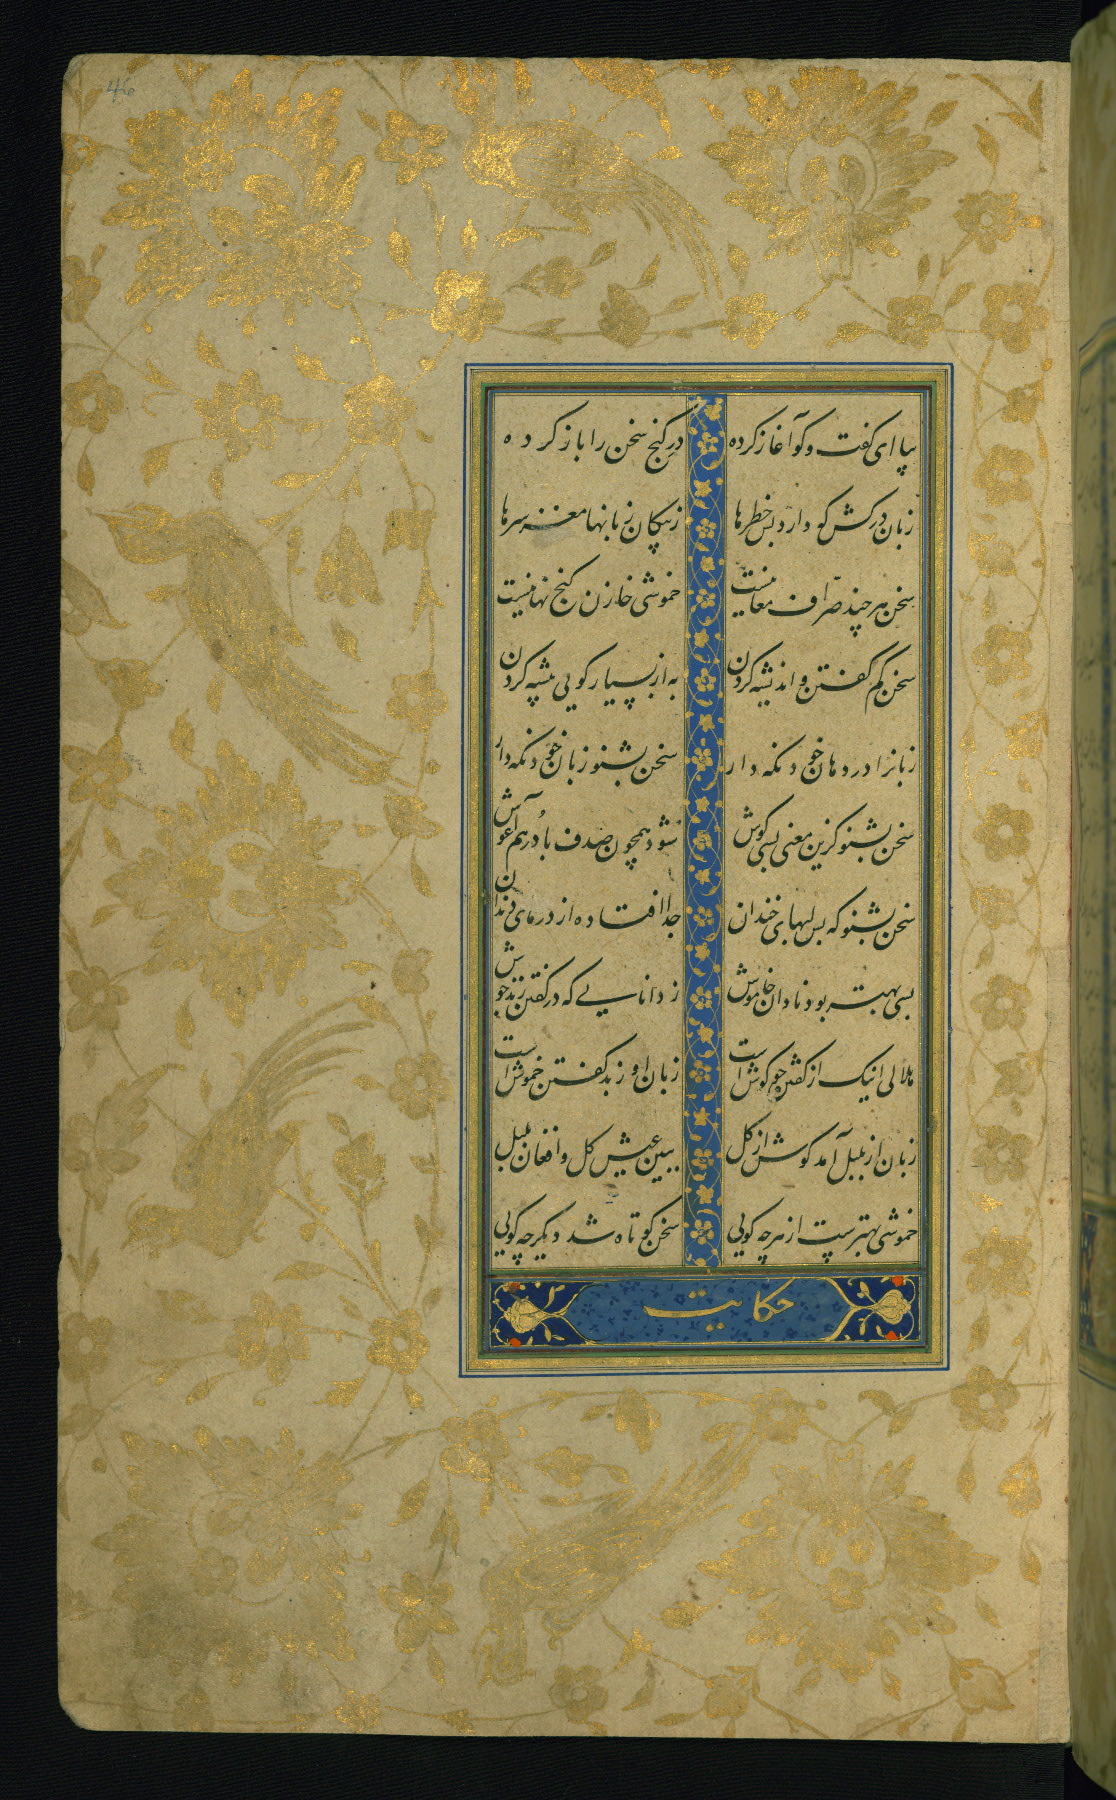 46
بیا ای گفت و گو آغاز کرده در گنج سخن را باز کرده
زبان درکش که دارد بس خطرها ز پیکان زبانها مغز سرها
سخن هر چند صراف معانیست خموشی خازن گنج نهانیست
سخن کم گفتن و اندیشه کردن به از بسیار گویی پیشه کردن
زبانرا در دهان خود نگه دار سخن بشنو زبان خود نگه دار
سخن بشنو کزین معنی بسی گوش شود همچون صدف با در هم آغوش
سخن بشنو که بس لبهای خندان جدا افتاده از درهای دندان
بسی بهتر بود نادان خاموش ز دانایی که در گفتن زند جوش
هلالی اینک از گفتن چو گوش است زبان او ز بد گفتن خموش است
زبان از بلبل آمد گوش از گل ببین عیش گل و افغان بلبل
خموشی بهترست از هر چه گویی سخن کوتاه شد دیگر چه گویی
حکایت